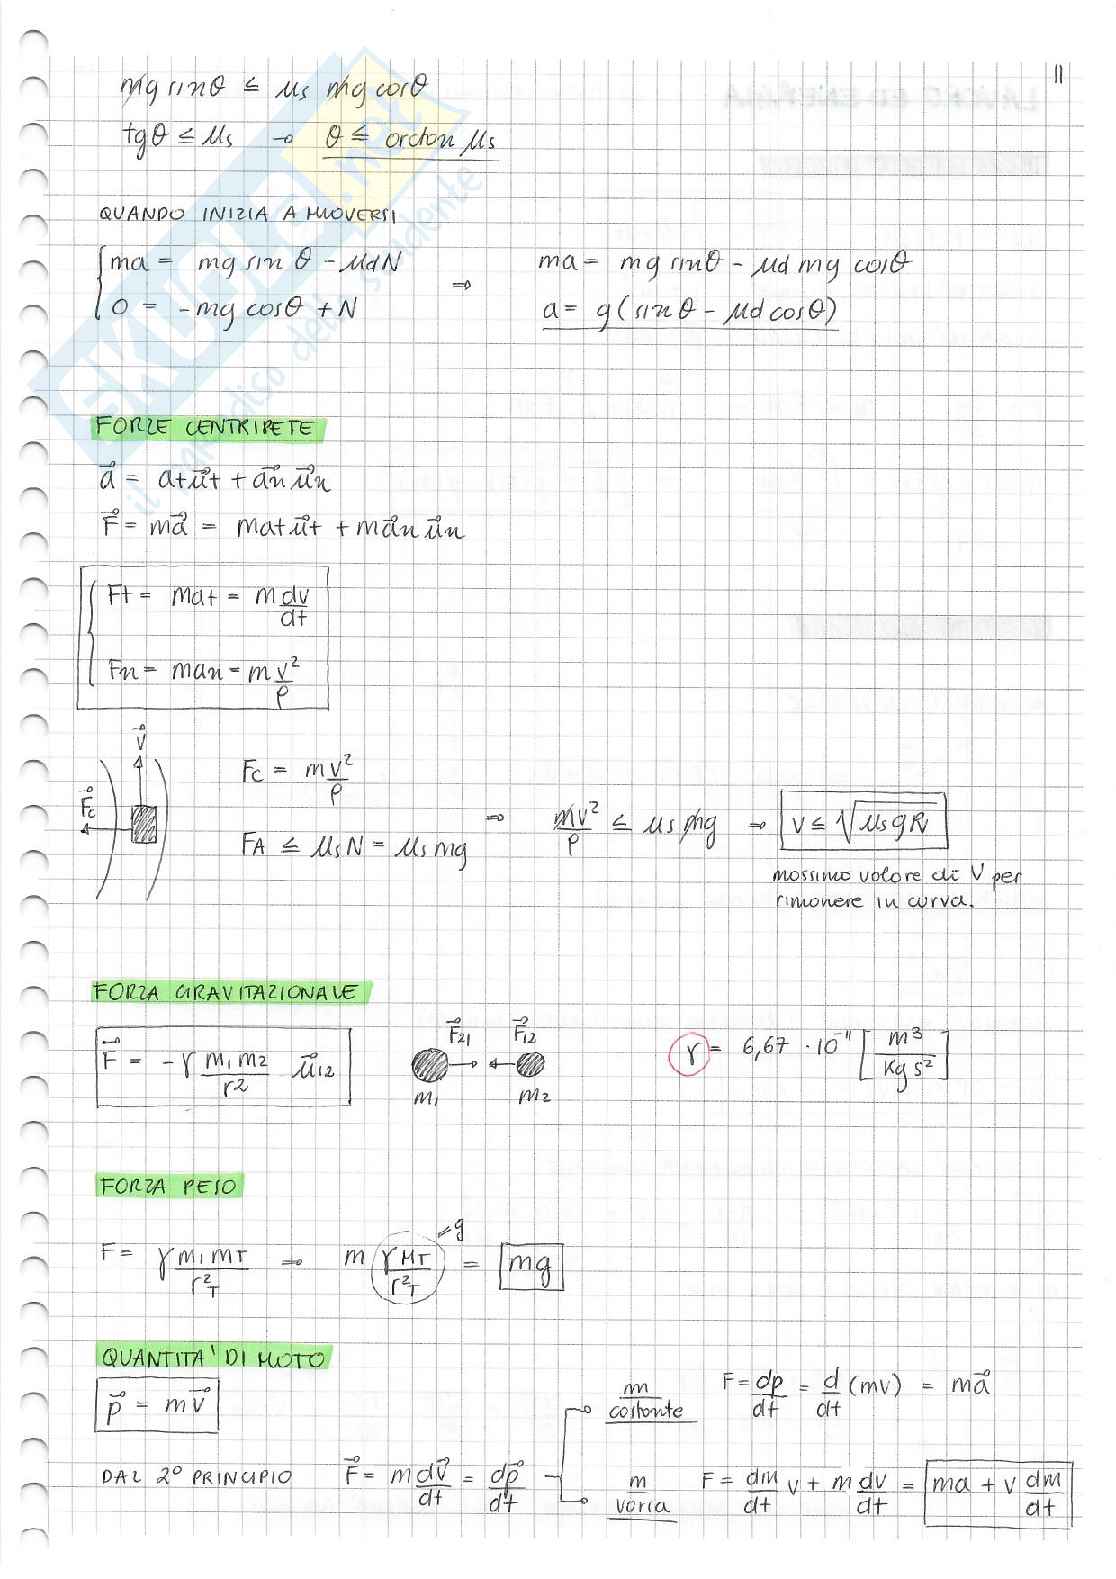 11
mg sinθ ≤ μs mg cosθ
tgθ ≤ μs → θ ≤ arctan μs
QUANDO INIZIA A MUOVERSI
ma = mg sin θ - μd N ⇒ ma = mg sinθ - μd mg cosθ
0 = -mg cosθ + N a = g(sinθ - μd cosθ)
FORZE CENTRIPETE
a⃗ = at u⃗t + a⃗n u⃗n
F⃗ = ma⃗ = mat u⃗t + ma⃗n u⃗n
Ft = mat = m dv/dt
Fn = man = m v²/ρ
v⃗
F⃗c
Fc = m v²/ρ
FA ≤ μs N = μs mg ⇒ mv²/ρ ≤ μs mg ⇒ v ≤ √μs g R
massimo valore di V per
rimanere in curva.
FORZA GRAVITAZIONALE
F⃗ = -γ m1 m2/r² u⃗12
F⃗21 F⃗12
m1 m2
γ = 6,67 · 10⁻¹¹ [m³/kg s²]
FORZA PESO
F = γ m1 mT/r²T → m (γ MT/r²T) = mg
=g
QUANTITA' DI MOTO
p⃗ = mv⃗
m costante F = dp/dt = d/dt (mv) = ma⃗
DAL 2° PRINCIPIO F⃗ = m dv⃗/dt = dp⃗/dt
m varia F = dm/dt v + m dv/dt = ma + v dm/dt
SKUOLA.net
il paradiso dello studente